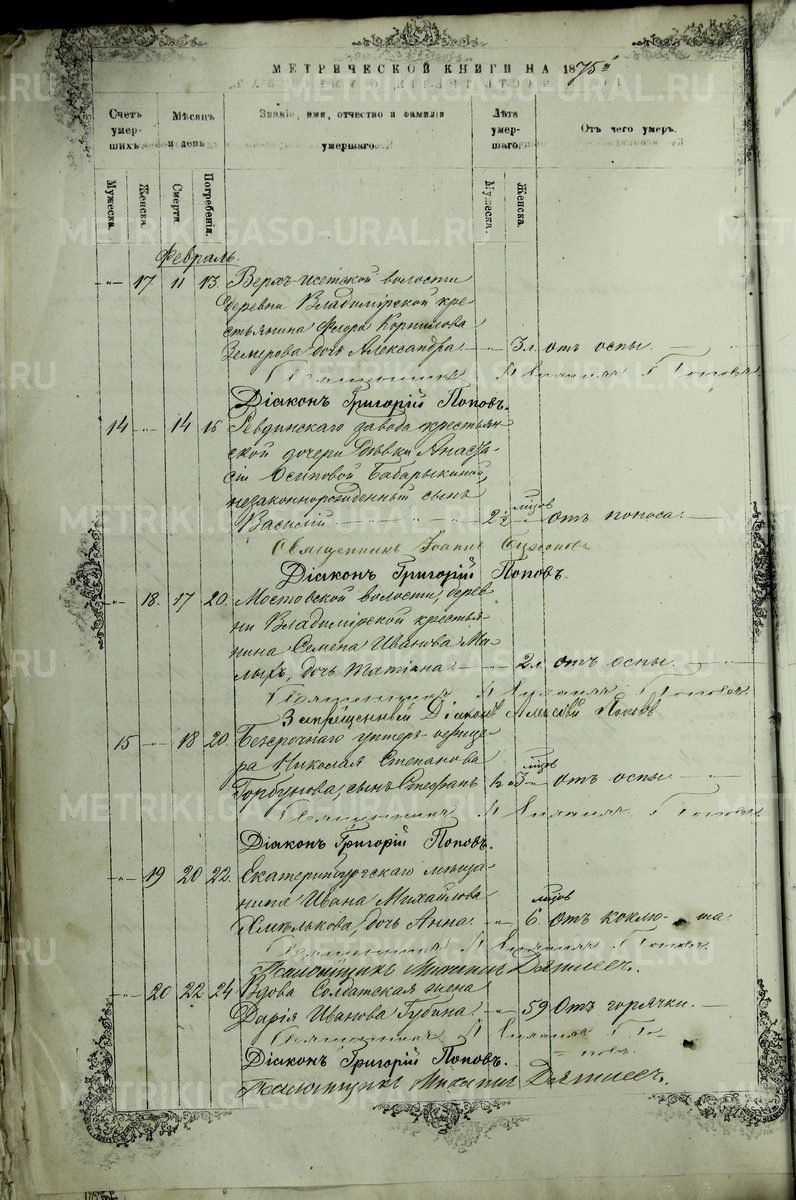 МЕТРИЧЕСКОЙ КНИГИ НА 1875й
Счетъ умершихъ.
Мѣсяцъ и день.
Званіе, имя, отчество и фамилія умершаго.
Лѣта умершаго.
Отъ чего умеръ.
Мужеска. Женска. Смерти. Погребенія. Мужеска. Женска.
Февраль.
-"- 17. 11 13. Верхъ-исетской волости
деревни Владимірской кре-
стьянина Флора Корнилова
дочь Александра. 3 л. отъ оспы.
Священникъ Поповъ
Діаконъ Григорій Поповъ.
14 -"- 14 15. Ревдинскаго завода крестьян-
ской дочери дѣвки Анаста-
сіи Осиповой Бабарыкиной,
незаконнорожденный сынъ
Василій 2½ мѣсяц. отъ поноса.
Священникъ Іоаннъ
Діаконъ Григорій Поповъ.
-"- 18. 17 20. Мостовской волости, дерев-
ни Владимірской крестья-
нина Семена Иванова Ма-
лыхъ, дочь Татіана 2 л. отъ оспы.
Священникъ Поповъ
Запрещенный Діаконъ Алексій Поповъ
15 -"- 18 20. Безсрочнаго унтеръ-офице-
ра Николая Степанова
Горбунова, сынъ Стефанъ 3 отъ оспы
Священникъ Поповъ
Діаконъ Григорій Поповъ.
-"- 19 20 22. Екатеринбургскаго мѣща-
нина Ивана Михайлова
Хмѣлькова, дочь Анна. 6. отъ коклюша.
Священникъ Поповъ
Псаломщикъ
-"- 20 22 24 Вдова Солдатская жена
Дарія Иванова Губина 59. Отъ горячки.
Священникъ По-
повъ.
Діаконъ Григорій Поповъ.
Псаломщикъ
METRIKI.GASO-URAL.RU